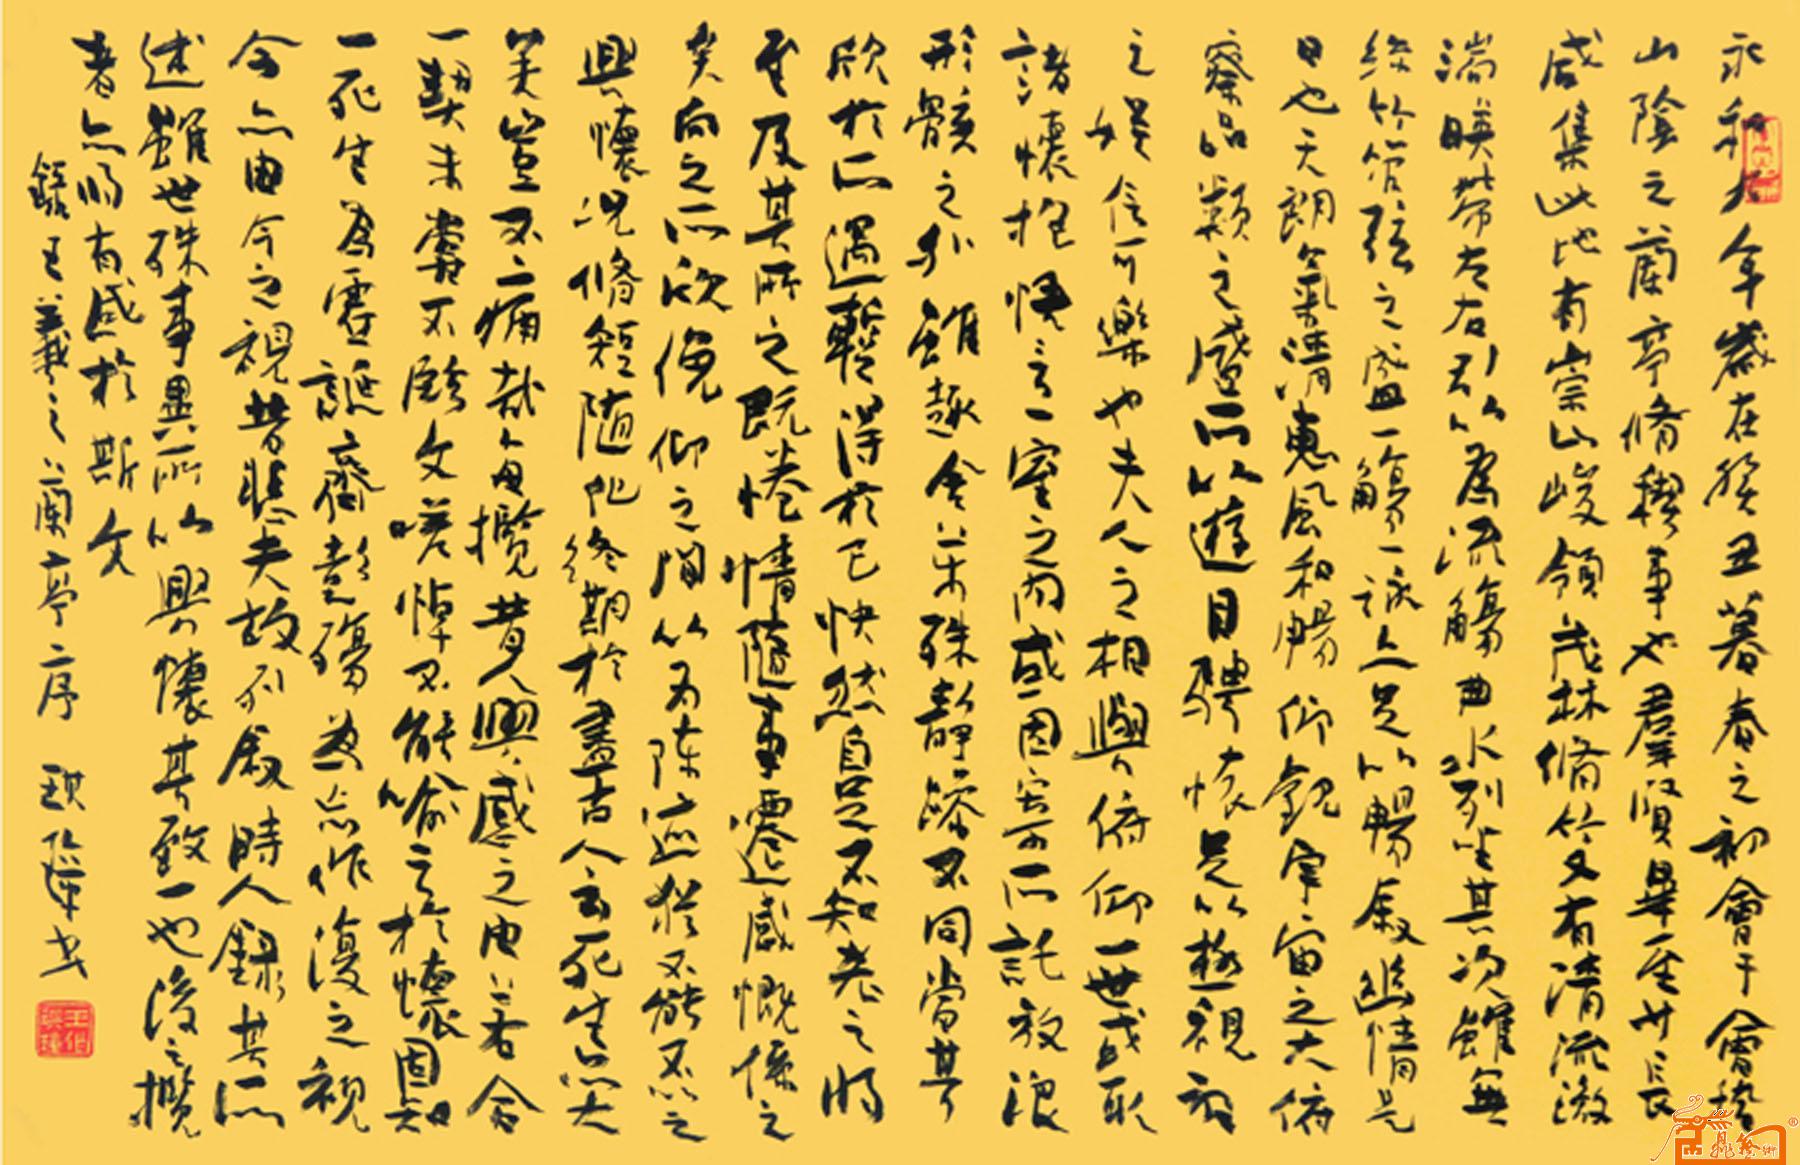 永和九年歲在癸丑暮春之初會于會稽
山陰之蘭亭脩稧事也羣賢畢至少長
咸集此地有崇山峻領茂林脩竹又有清流激
湍暎帶左右引以為流觴曲水列坐其次雖無
絲竹管弦之盛一觴一詠亦足以暢叙幽情是
日也天朗氣清惠風和暢仰觀宇宙之大俯
察品類之盛所以遊目騁懷足以極視聽
之娛信可樂也夫人之相與俯仰一世或取
諸懷抱悟言一室之內或因寄所託放浪
形骸之外雖趣舍萬殊靜躁不同當其
欣於所遇暫得於己快然自足不知老之將
至及其所之既惓情隨事遷感慨係之
矣向之所欣俛仰之間以為陳迹猶不能不以之
興懷況脩短隨化終期於盡古人云死生亦大
矣豈不痛哉每攬昔人興感之由若合
一契未嘗不臨文嗟悼不能喻之於懷固知
一死生為虛誕齊彭殤為妄作後之視
今亦由今之視昔悲夫故列叙時人錄其所
述雖世殊事異所以興懷其致一也後之攬
者亦將有感於斯文
錄王羲之蘭亭序